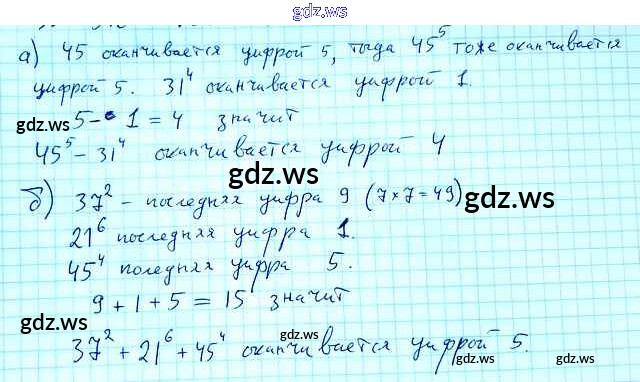 gdz.ws
а) 45 оканчивается цифрой 5, тогда 45⁵ тоже оканчивается
цифрой 5. 31⁴ оканчивается цифрой 1.
gdz.ws 5 - 1 = 4 значит gdz.ws
45⁵ - 31⁴ оканчивается цифрой 4
gdz.ws
б) 37² - последняя цифра 9 (7×7=49) gdz.ws
21⁶ последняя цифра 1.
45⁴ поледняя цифра 5.
9 + 1 + 5 = 15 значит
gdz.ws gdz.ws gdz.ws
37² + 21⁶ + 45⁴ оканчивается цифрой 5.
gdz.ws gdz.ws